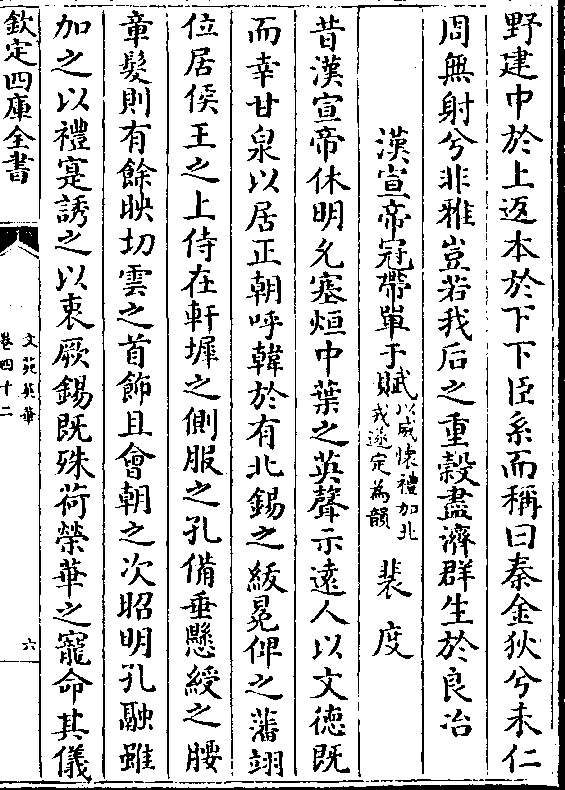 野建中於上返本於下下臣系而稱曰秦金狄兮未仁
周無射兮非雅豈若我后之重穀盡濟群生於良冶
漢宣帝冠帶單于賦以威懷禮加北戎遂定為韻 裴度
昔漢宣帝休明允塞烜中葉之英聲示遠人以文德既
而幸甘泉以居正朝呼韓於有北錫之紱冕俾之藩翊
位居侯王之上侍在軒墀之側服之孔備垂懸綬之腰
章髮則有餘映切雲之首飾且會朝之次昭明孔融雖
加之以禮寔誘之以衷厥錫既殊荷榮華之寵命其儀
欽定四庫全書
文苑英華
卷四十二
六